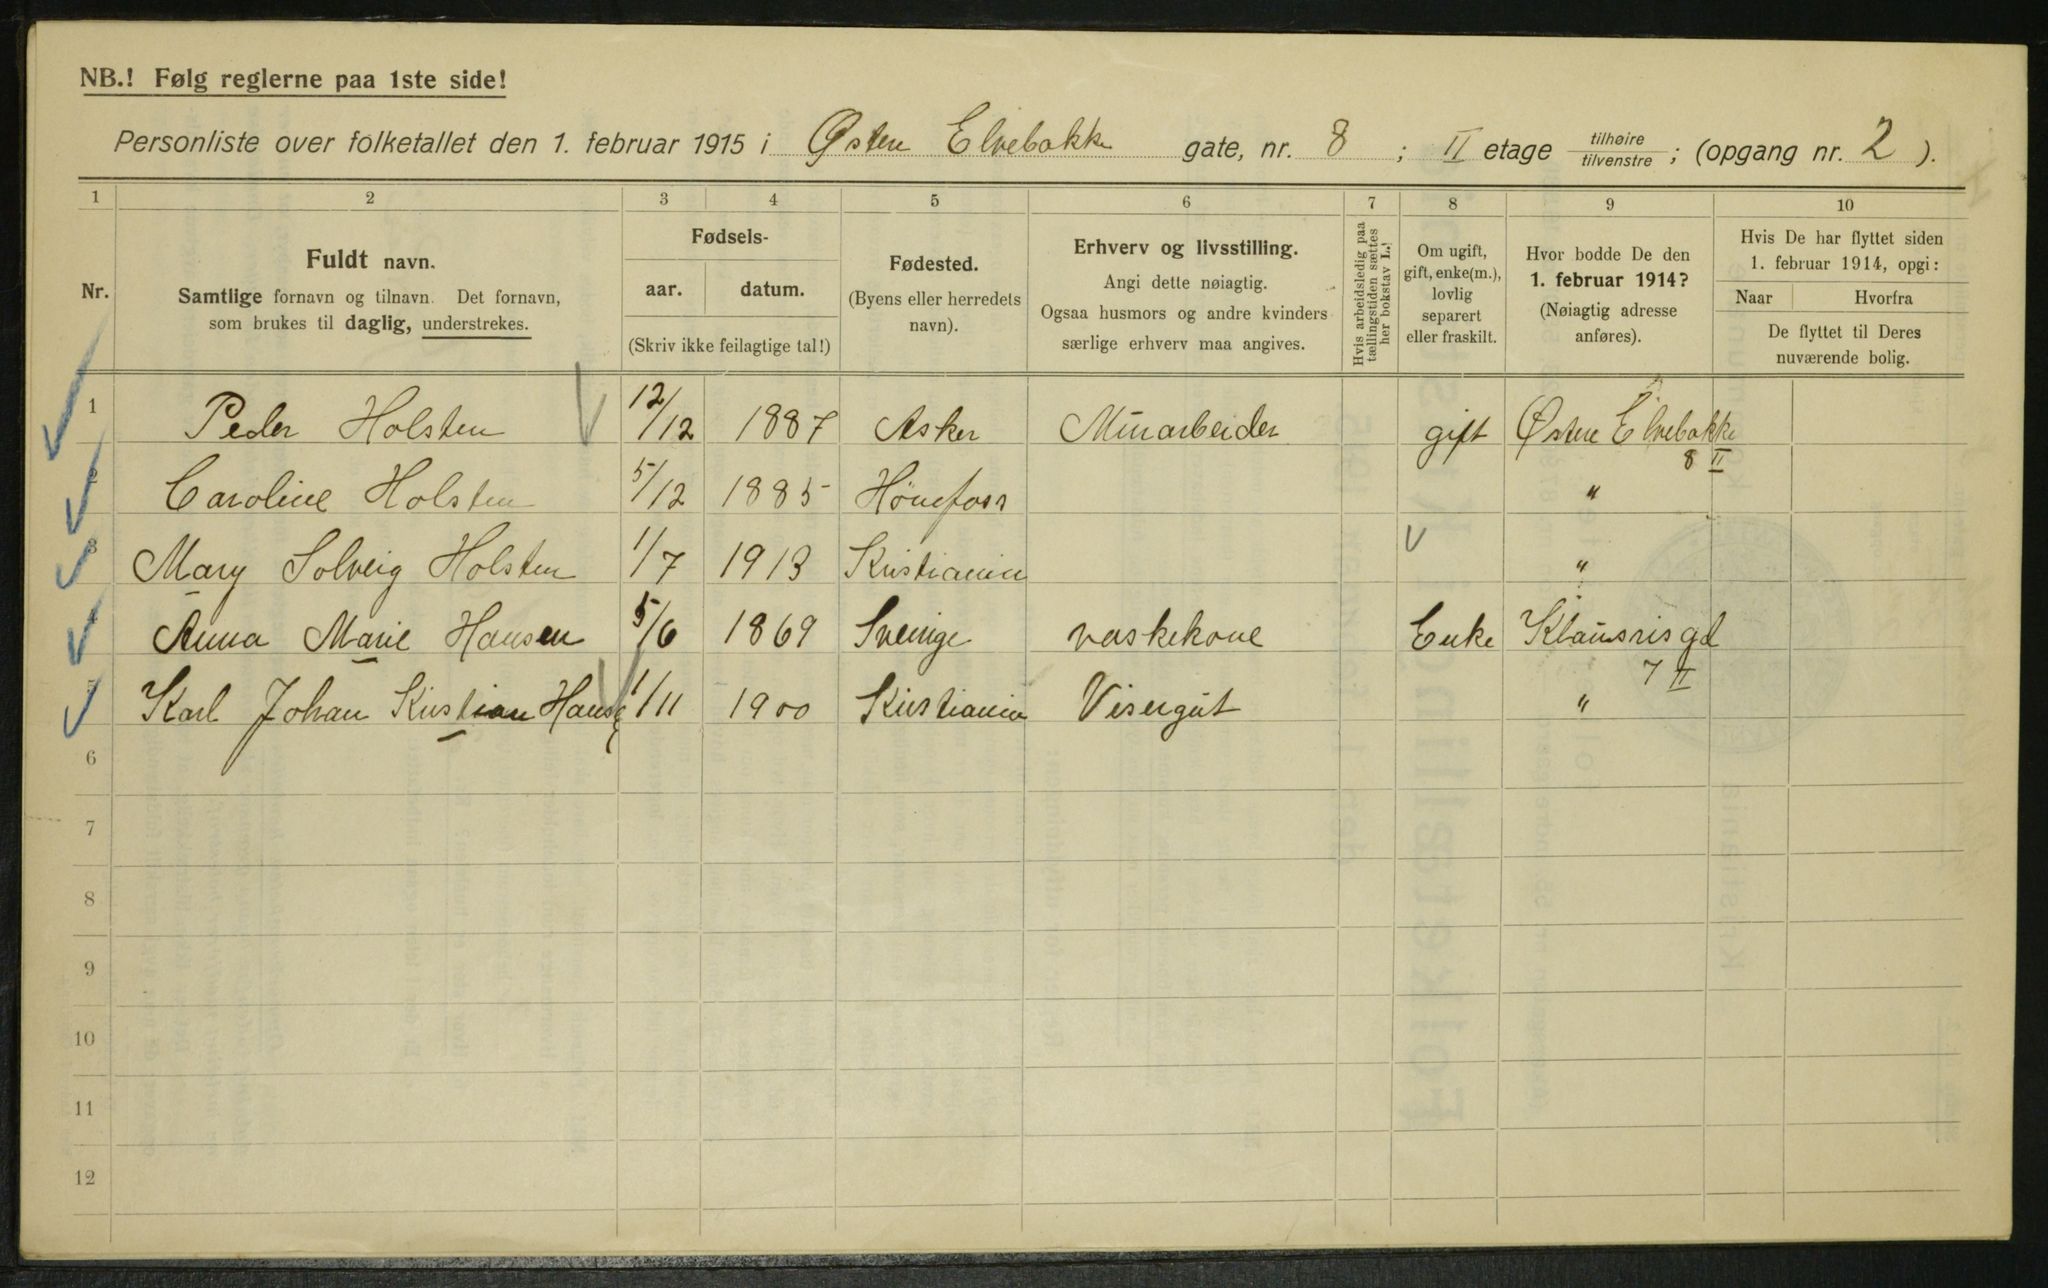 NB.! Følg reglerne paa 1ste side!
Personliste over folketallet den 1. februar 1915 i Østen Elvebakke gate, nr. 8 ; II etage tilhøire tilvenstre ; (opgang nr. 2 ).
1 2 3 4 5 6 7 8 9 10
Nr.
Fuldt navn.
Samtlige fornavn og tilnavn. Det fornavn,
som brukes til daglig, understrekes.
Fødsels-
aar. datum.
(Skriv ikke feilagtige tal!)
Fødested.
(Byens eller herredets
navn).
Erhverv og livsstilling.
Angi dette nøiagtig.
Ogsaa husmors og andre kvinders
særlige erhverv maa angives.
Hvis arbeidsledig paa
tællingstiden sættes
her bokstav L.!
Om ugift,
gift, enke(m.),
lovlig
separert
eller fraskilt.
Hvor bodde De den
1. februar 1914?
(Nøiagtig adresse
anføres).
Hvis De har flyttet siden
1. februar 1914, opgi:
Naar Hvorfra
De flyttet til Deres
nuværende bolig.
1 Peder Holsten 12/12 1887 Asker Murarbeider gift Østre Elvebakke
8 II
2 Caroline Holsten 5/12 1885 Hönefoss "
3 Mary Solveig Holsten 1/7 1913 Kristiania "
4 Anna Marie Hansen 5/6 1869 Sverige vaskekone Enke Klausrisgd
7 II
5 Karl Johan Kristian Hansen 1/11 1900 Kristiania Visergut "
6
7
8
9
10
11
12